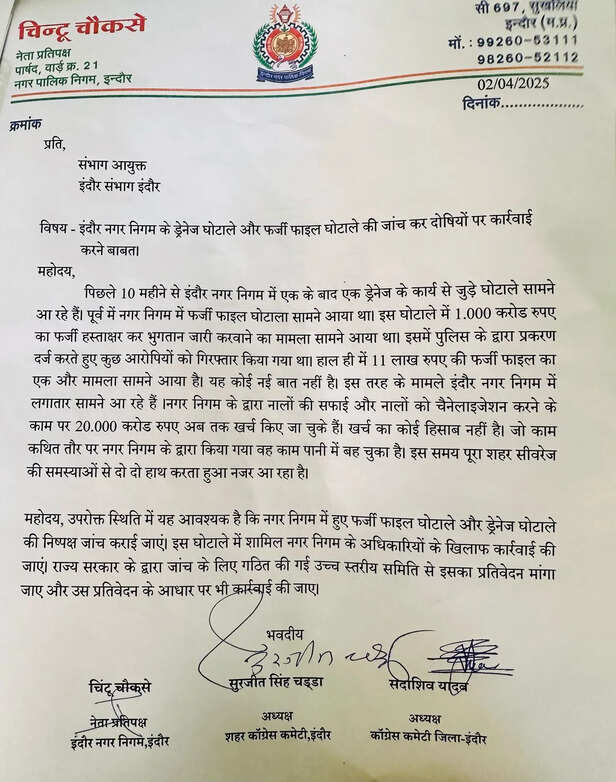 चिन्टू चौकसे
नेता प्रतिपक्ष
पार्षद, वार्ड क्र. 21
नगर पालिक निगम, इन्दौर
सी 697, सुखलिया
इन्दौर (म.प्र.)
मों. : 99260-53111
98260-52112
02/04/2025
दिनांक...................
क्रमांक
प्रति,
संभाग आयुक्त
इंदौर संभाग इंदौर
विषय - इंदौर नगर निगम के ड्रेनेज घोटाले और फर्जी फाइल घोटाले की जांच कर दोषियों पर कार्रवाई
करने बाबत।
महोदय,
पिछले 10 महीने से इंदौर नगर निगम में एक के बाद एक ड्रेनेज के कार्य से जुड़े घोटाले सामने
आ रहे हैं। पूर्व में नगर निगम में फर्जी फाइल घोटाला सामने आया था। इस घोटाले में 1.000 करोड रुपए
का फर्जी हस्ताक्षर कर भुगतान जारी करवाने का मामला सामने आया था। इसमें पुलिस के द्वारा प्रकरण
दर्ज करते हुए कुछ आरोपियों को गिरफ्तार किया गया था। हाल ही में 11 लाख रुपए की फर्जी फाइल का
एक और मामला सामने आया है। यह कोई नई बात नहीं है। इस तरह के मामले इंदौर नगर निगम में
लगातार सामने आ रहे हैं ।नगर निगम के द्वारा नालों की सफाई और नालों को चैनेलाइजेशन करने के
काम पर 20.000 करोड रुपए अब तक खर्च किए जा चुके हैं। खर्च का कोई हिसाब नहीं है। जो काम
कथित तौर पर नगर निगम के द्वारा किया गया वह काम पानी में बह चुका है। इस समय पूरा शहर सीवरेज
की समस्याओं से दो दो हाथ करता हुआ नजर आ रहा है।
महोदय, उपरोक्त स्थिति में यह आवश्यक है कि नगर निगम में हुए फर्जी फाइल घोटाले और ड्रेनेज घोटाले
की निष्पक्ष जांच कराई जाएं। इस घोटाले में शामिल नगर निगम के अधिकारियों के खिलाफ कार्रवाई की
जाएं। राज्य सरकार के द्वारा जांच के लिए गठित की गई उच्च स्तरीय समिति से इसका प्रतिवेदन मांगा
जाए और उस प्रतिवेदन के आधार पर भी कार्रवाई की जाए।
भवदीय
चिंटू चौकसे
सुरजीत सिंह चड्डा
सदाशिव यादव
नेता प्रतिपक्ष
अध्यक्ष
अध्यक्ष
इंदौर नगर निगम,इंदौर
शहर कॉग्रेस कमेटी,इंदौर
कॉग्रेस कमेटी जिला-इंदौर